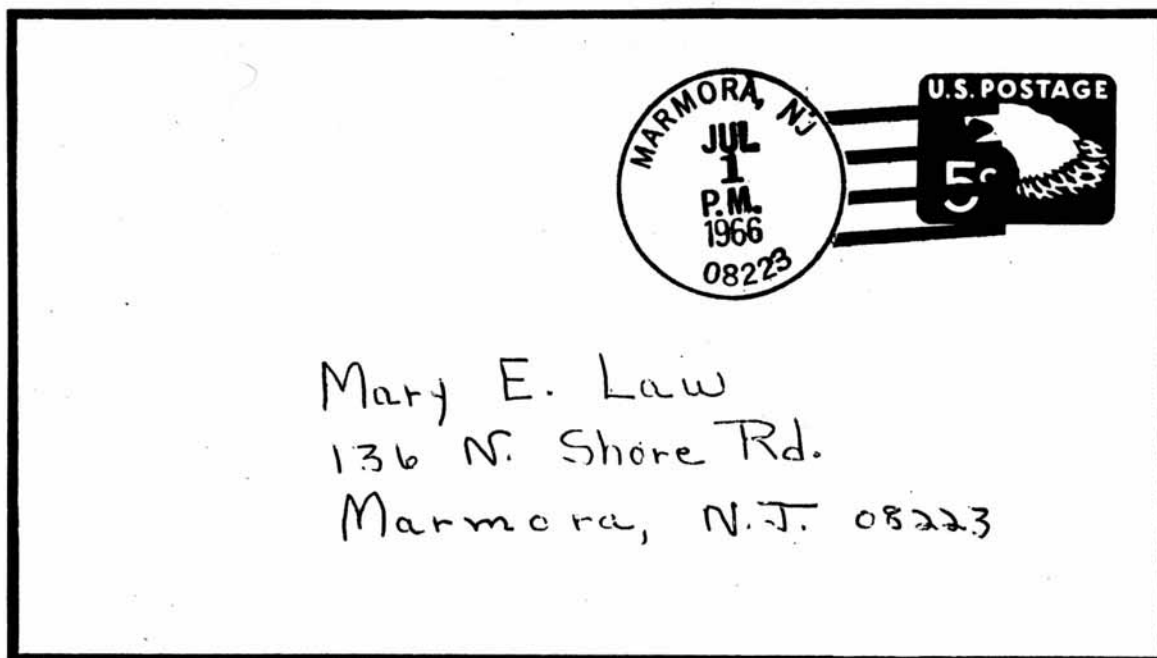 MARMORA, NJ
JUL
1
P.M.
1966
08223
U.S. POSTAGE
5c
Mary E. Law
136 N. Shore Rd.
Marmora, N.J. 08223